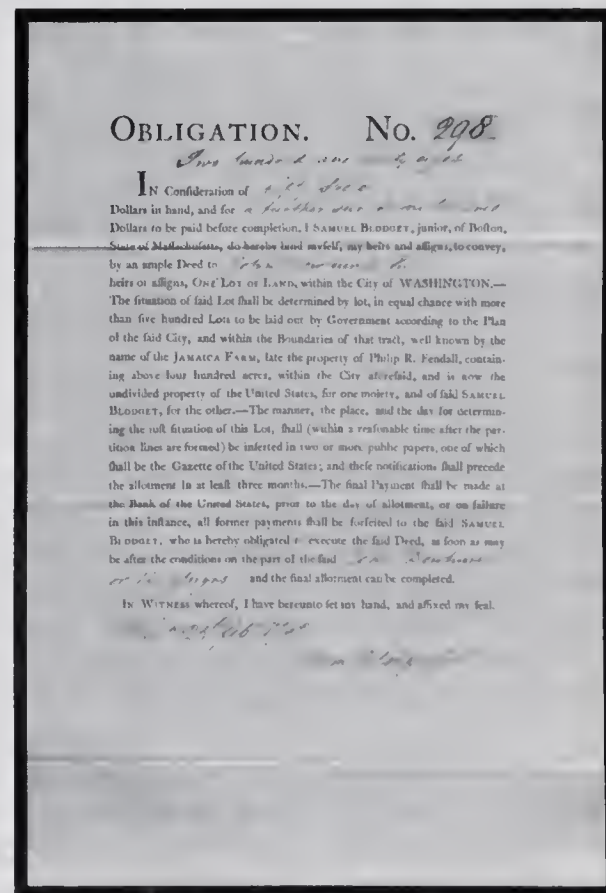 OBLIGATION. No. 298
Two hundred
IN Conſideration of
Dollars in hand, and for a further
Dollars to be paid before completion, I SAMUEL BLODGET, junior, of Boſton,
State of Maſſachuſetts, do hereby bind myſelf, my heirs and aſſigns, to convey,
by an ample Deed to John
heirs or aſſigns, ONE LOT OF LAND, within the City of WASHINGTON.—
The ſituation of ſaid Lot ſhall be determined by lot, in equal chance with more
than five hundred Lots to be laid out by Government according to the Plan
of the ſaid City, and within the Boundaries of that tract, well known by the
name of the JAMAICA FARM, late the property of Philip R. Fendall, contain-
ing above four hundred acres, within the City aforeſaid, and is now the
undivided property of the United States, for one moiety, and of ſaid SAMUEL
BLODGET, for the other.—The manner, the place, and the day for determin-
ing the juſt ſituation of this Lot, ſhall (within a reaſonable time after the par-
tition lines are formed) be inſerted in two or more public papers, one of which
ſhall be the Gazette of the United States; and theſe notifications ſhall precede
the allotment in at leaſt three months.—The final Payment ſhall be made at
the Bank of the United States, prior to the day of allotment, or on failure
in this inſtance, all former payments ſhall be forfeited to the ſaid SAMUEL
BLODGET, who is hereby obligated to execute the ſaid Deed, as ſoon as may
be after the conditions on the part of the ſaid
or and the final allotment can be completed.
IN WITNESS whereof, I have hereunto ſet my hand, and affixed my ſeal.